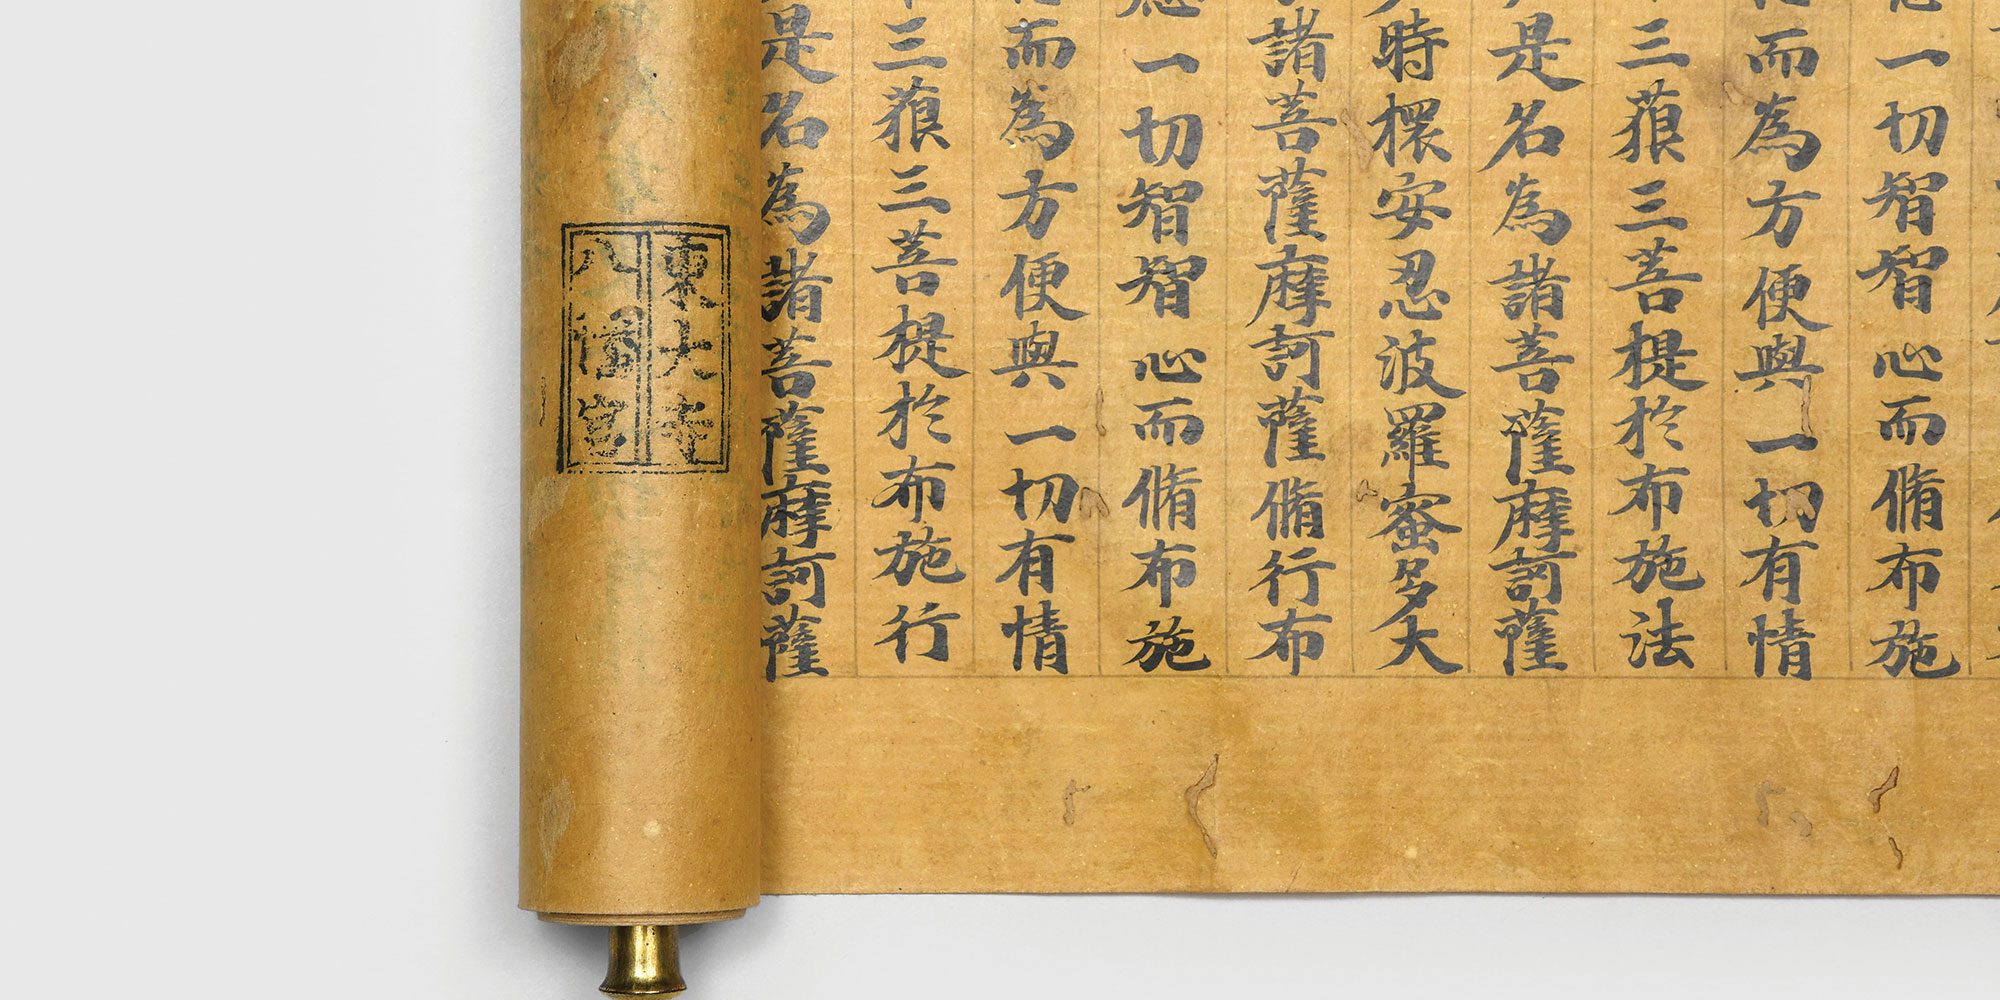 一切智智心而脩布施
而為方便與一切有情
三藐三菩提於布施法
是名為諸菩薩摩訶薩
時擐安忍波羅蜜多大
諸菩薩摩訶薩脩行布
應一切智智心而脩布施
而為方便與一切有情
三藐三菩提於布施行
是名為諸菩薩摩訶薩
東大寺
八幡宮